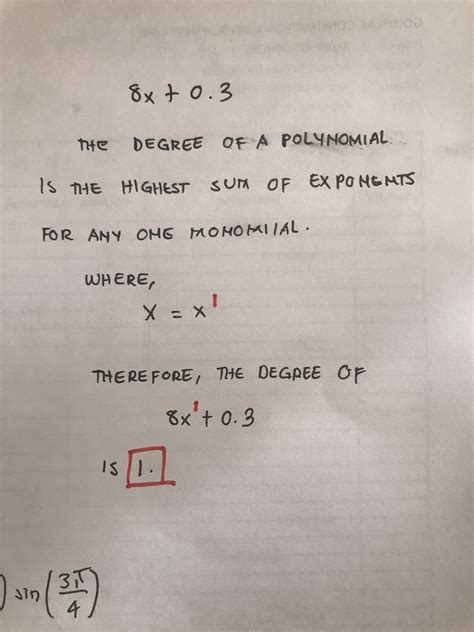 8x + 0.3
THE DEGREE OF A POLYNOMIAL
IS THE HIGHEST SUM OF EXPONENTS
FOR ANY ONE MONOMIIAL.
WHERE,
X = x¹
THEREFORE, THE DEGREE OF
8x¹ + 0.3
IS 1.
) sin(3π/4)